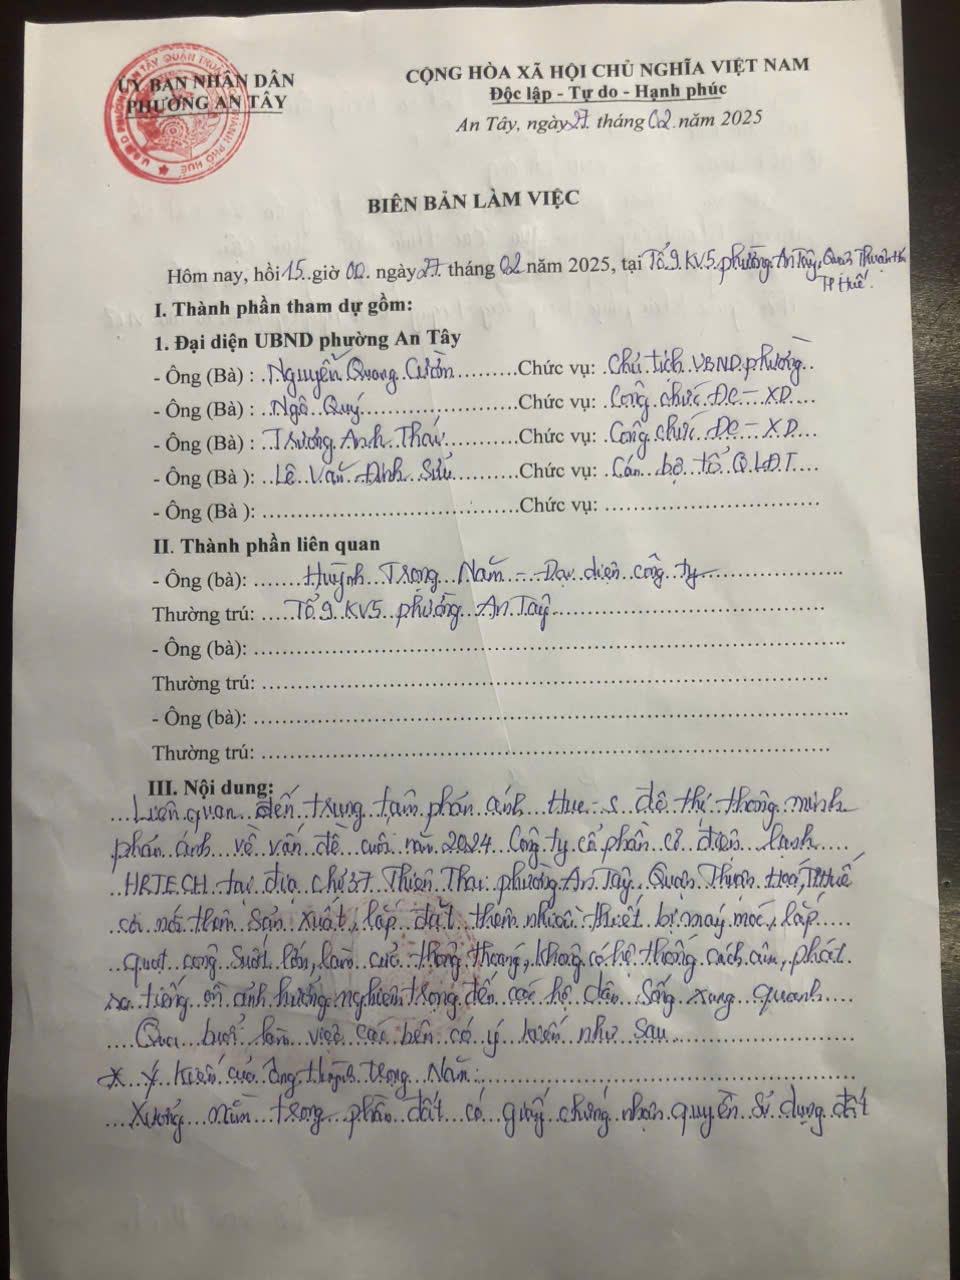 ỦY BAN NHÂN DÂN
PHƯỜNG AN TÂY
CỘNG HÒA XÃ HỘI CHỦ NGHĨA VIỆT NAM
Độc lập - Tự do - Hạnh phúc
An Tây, ngày 27. tháng 02 năm 2025
BIÊN BẢN LÀM VIỆC
Hôm nay, hồi 15 giờ 00 ngày 27 tháng 02 năm 2025, tại Tổ 9 KV5 phường An Tây, Quận Thuận Hóa
TP Huế.
I. Thành phần tham dự gồm:
1. Đại diện UBND phường An Tây
- Ông (Bà) : Nguyễn Quang Cườm Chức vụ: Chủ tịch UBND phường
- Ông (Bà) : Ngô Quý Chức vụ: Công chức ĐC - XD
- Ông (Bà) : Trương Anh Thái Chức vụ: Công chức ĐC - XD
- Ông (Bà ): Lê Văn Đình Sửu Chức vụ: Cán bộ tổ QLĐT
- Ông (Bà ): Chức vụ:
II. Thành phần liên quan
- Ông (bà): Huỳnh Trọng Năm - Đại diện công ty
Thường trú: Tổ 9 KV5 phường An Tây
- Ông (bà):
Thường trú:
- Ông (bà):
Thường trú:
III. Nội dung:
Liên quan đến trung tâm phản ánh Hue-s đô thị thông minh
phản ánh về vấn đề cuối năm 2024 Công ty cổ phần cơ điện lạnh
HRTECH tại địa chỉ 37 Thiên Thai phường An Tây, Quận Thuận Hoá, TP Huế
có mở thêm sản xuất, lắp đặt thêm nhiều thiết bị máy móc, lắp
quạt công suất lớn, làm cửa thông thoáng, không có hệ thống cách âm, phát
ra tiếng ồn ảnh hưởng nghiêm trọng đến các hộ dân sống xung quanh
Qua buổi làm việc các bên có ý kiến như sau
* Ý kiến của ông Huỳnh Trọng Năm:
Xưởng nằm trong phần đất có giấy chứng nhận quyền sử dụng đất